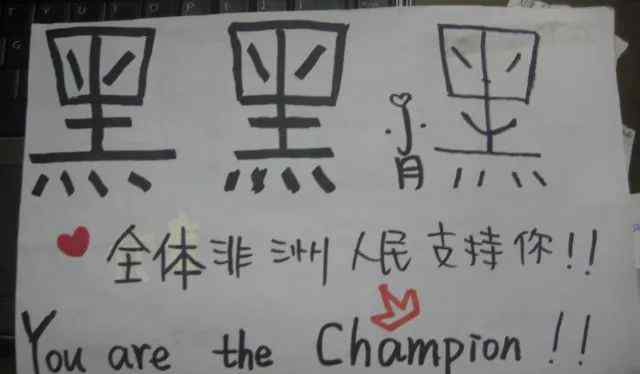 黑 黑 肖 黑
全体非洲人民支持你!!
You are the Champion!!